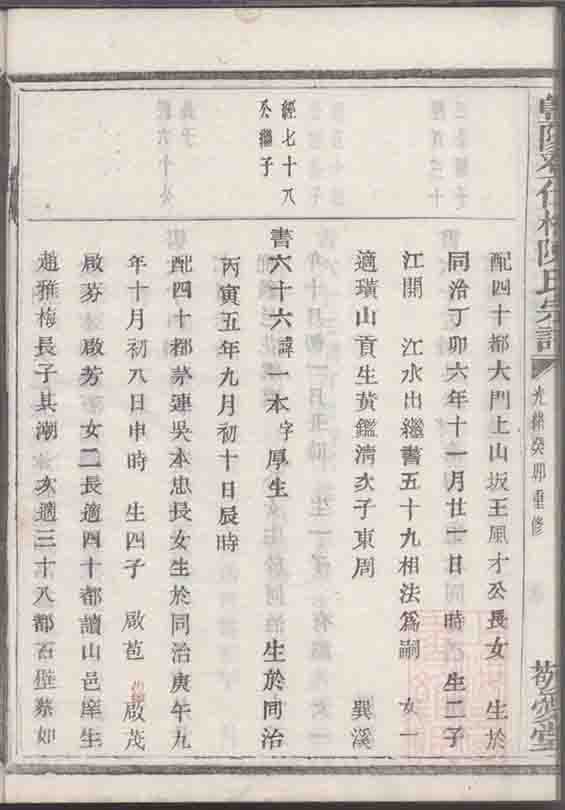 陳氏宗譜
光緒癸卯重修
敬愛堂
配四十都大門上山坂王風才公長女 生於
同治丁卯六年十一月廿一日 時 生二子
江開 江水出繼書五十九相法爲嗣 女一
適璜山貢生黃鑑清次子東周 巽溪
經七十八
公繼子
書六十六諱一本字厚生 生於同治
丙寅五年九月初十日辰時
配四十都茅蓮吳本忠長女生於同治庚午九
年十月初八日申時 生四子 啟苞 啟茂
啟芬 啟芳 女二長適四十都讀山邑庠生
趙雅梅長子其潮 次適三十八都石壁蔡如